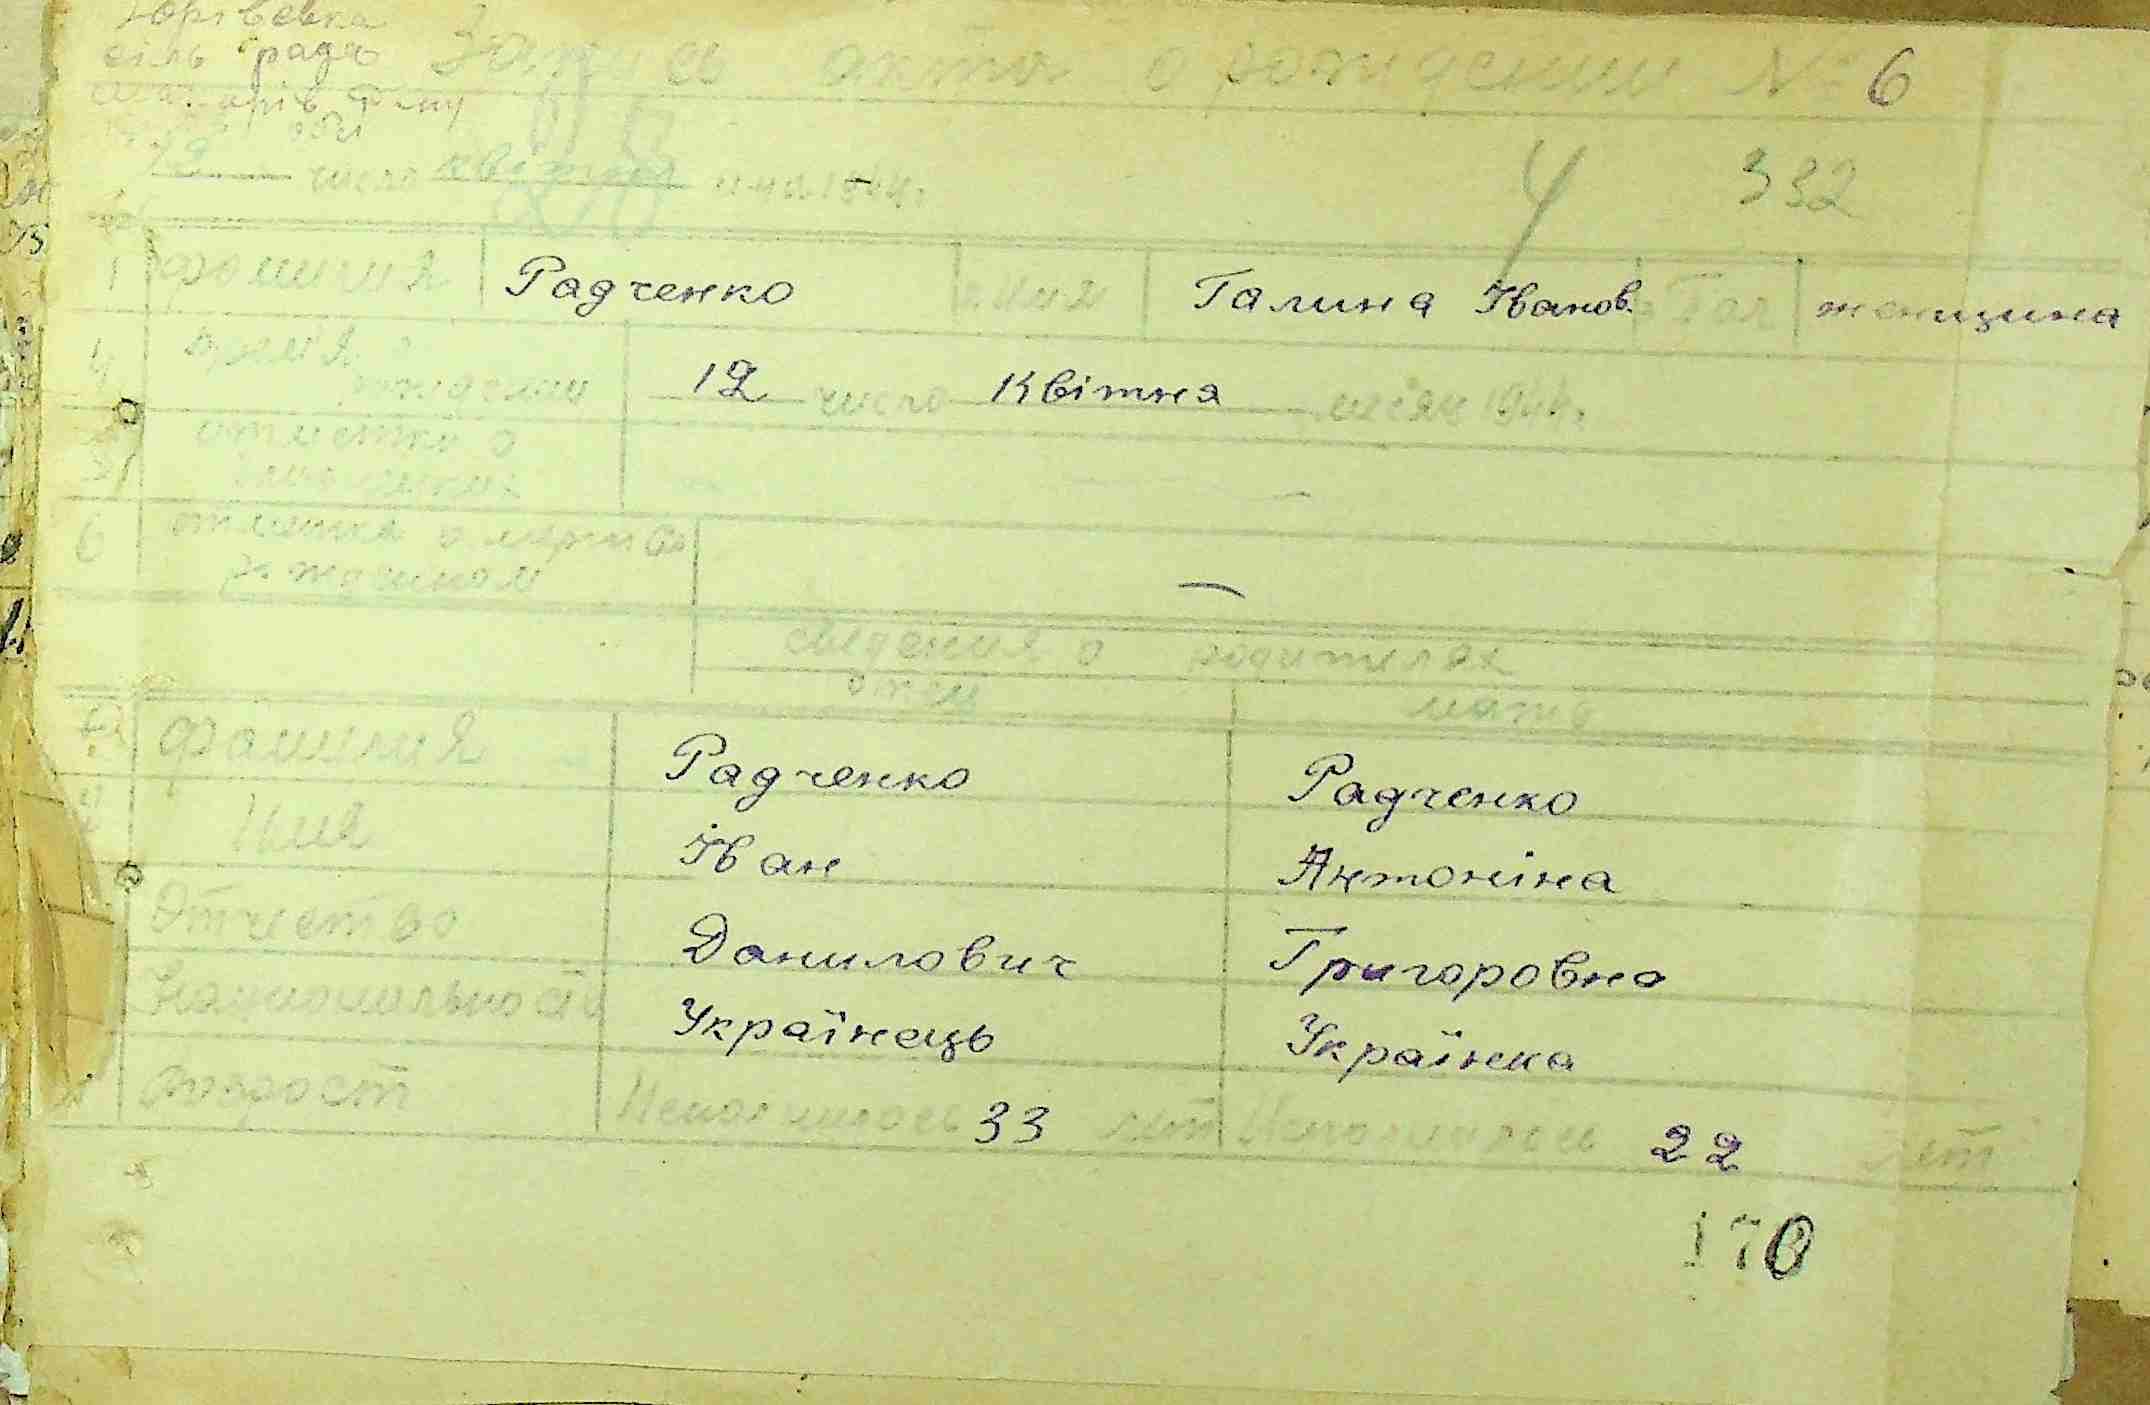 Юрівська
сіль рада
Запись акта о рождении № 6
обл
12 число квітня м-ца 1944г.
332
1 фамилия Радченко Имя Галина Іванов. Пол женщина
4 время рождения 12 число Квітня месяц 1944г.
5 отметка о
6 отметка о мертво
рожденном
—
сведения о родителях
отец мать
фамилия Радченко Радченко
Имя Іван Антоніна
Отчество Данилович Григоровна
Национальность Українець Українка
возраст Исполнилось 33 лет Исполнилось 22 лет
170